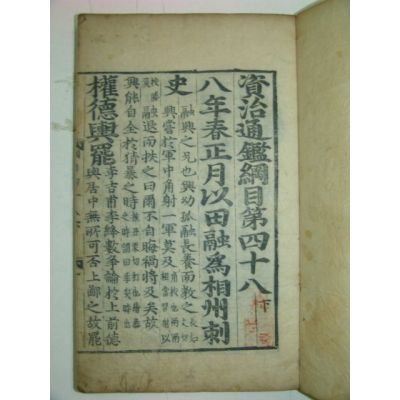 資治通鑑綱目第四十八下
八年春正月以田融爲相州刺
史
融興之兄也興幼孤融長養而教之
興嘗於軍中角射一軍莫及
融退而抶之曰爾不自晦禍將及矣故
興能自全於猜暴之時
權德輿罷
李吉甫李絳數爭論於上前德
輿居中無所可否上鄙之故罷